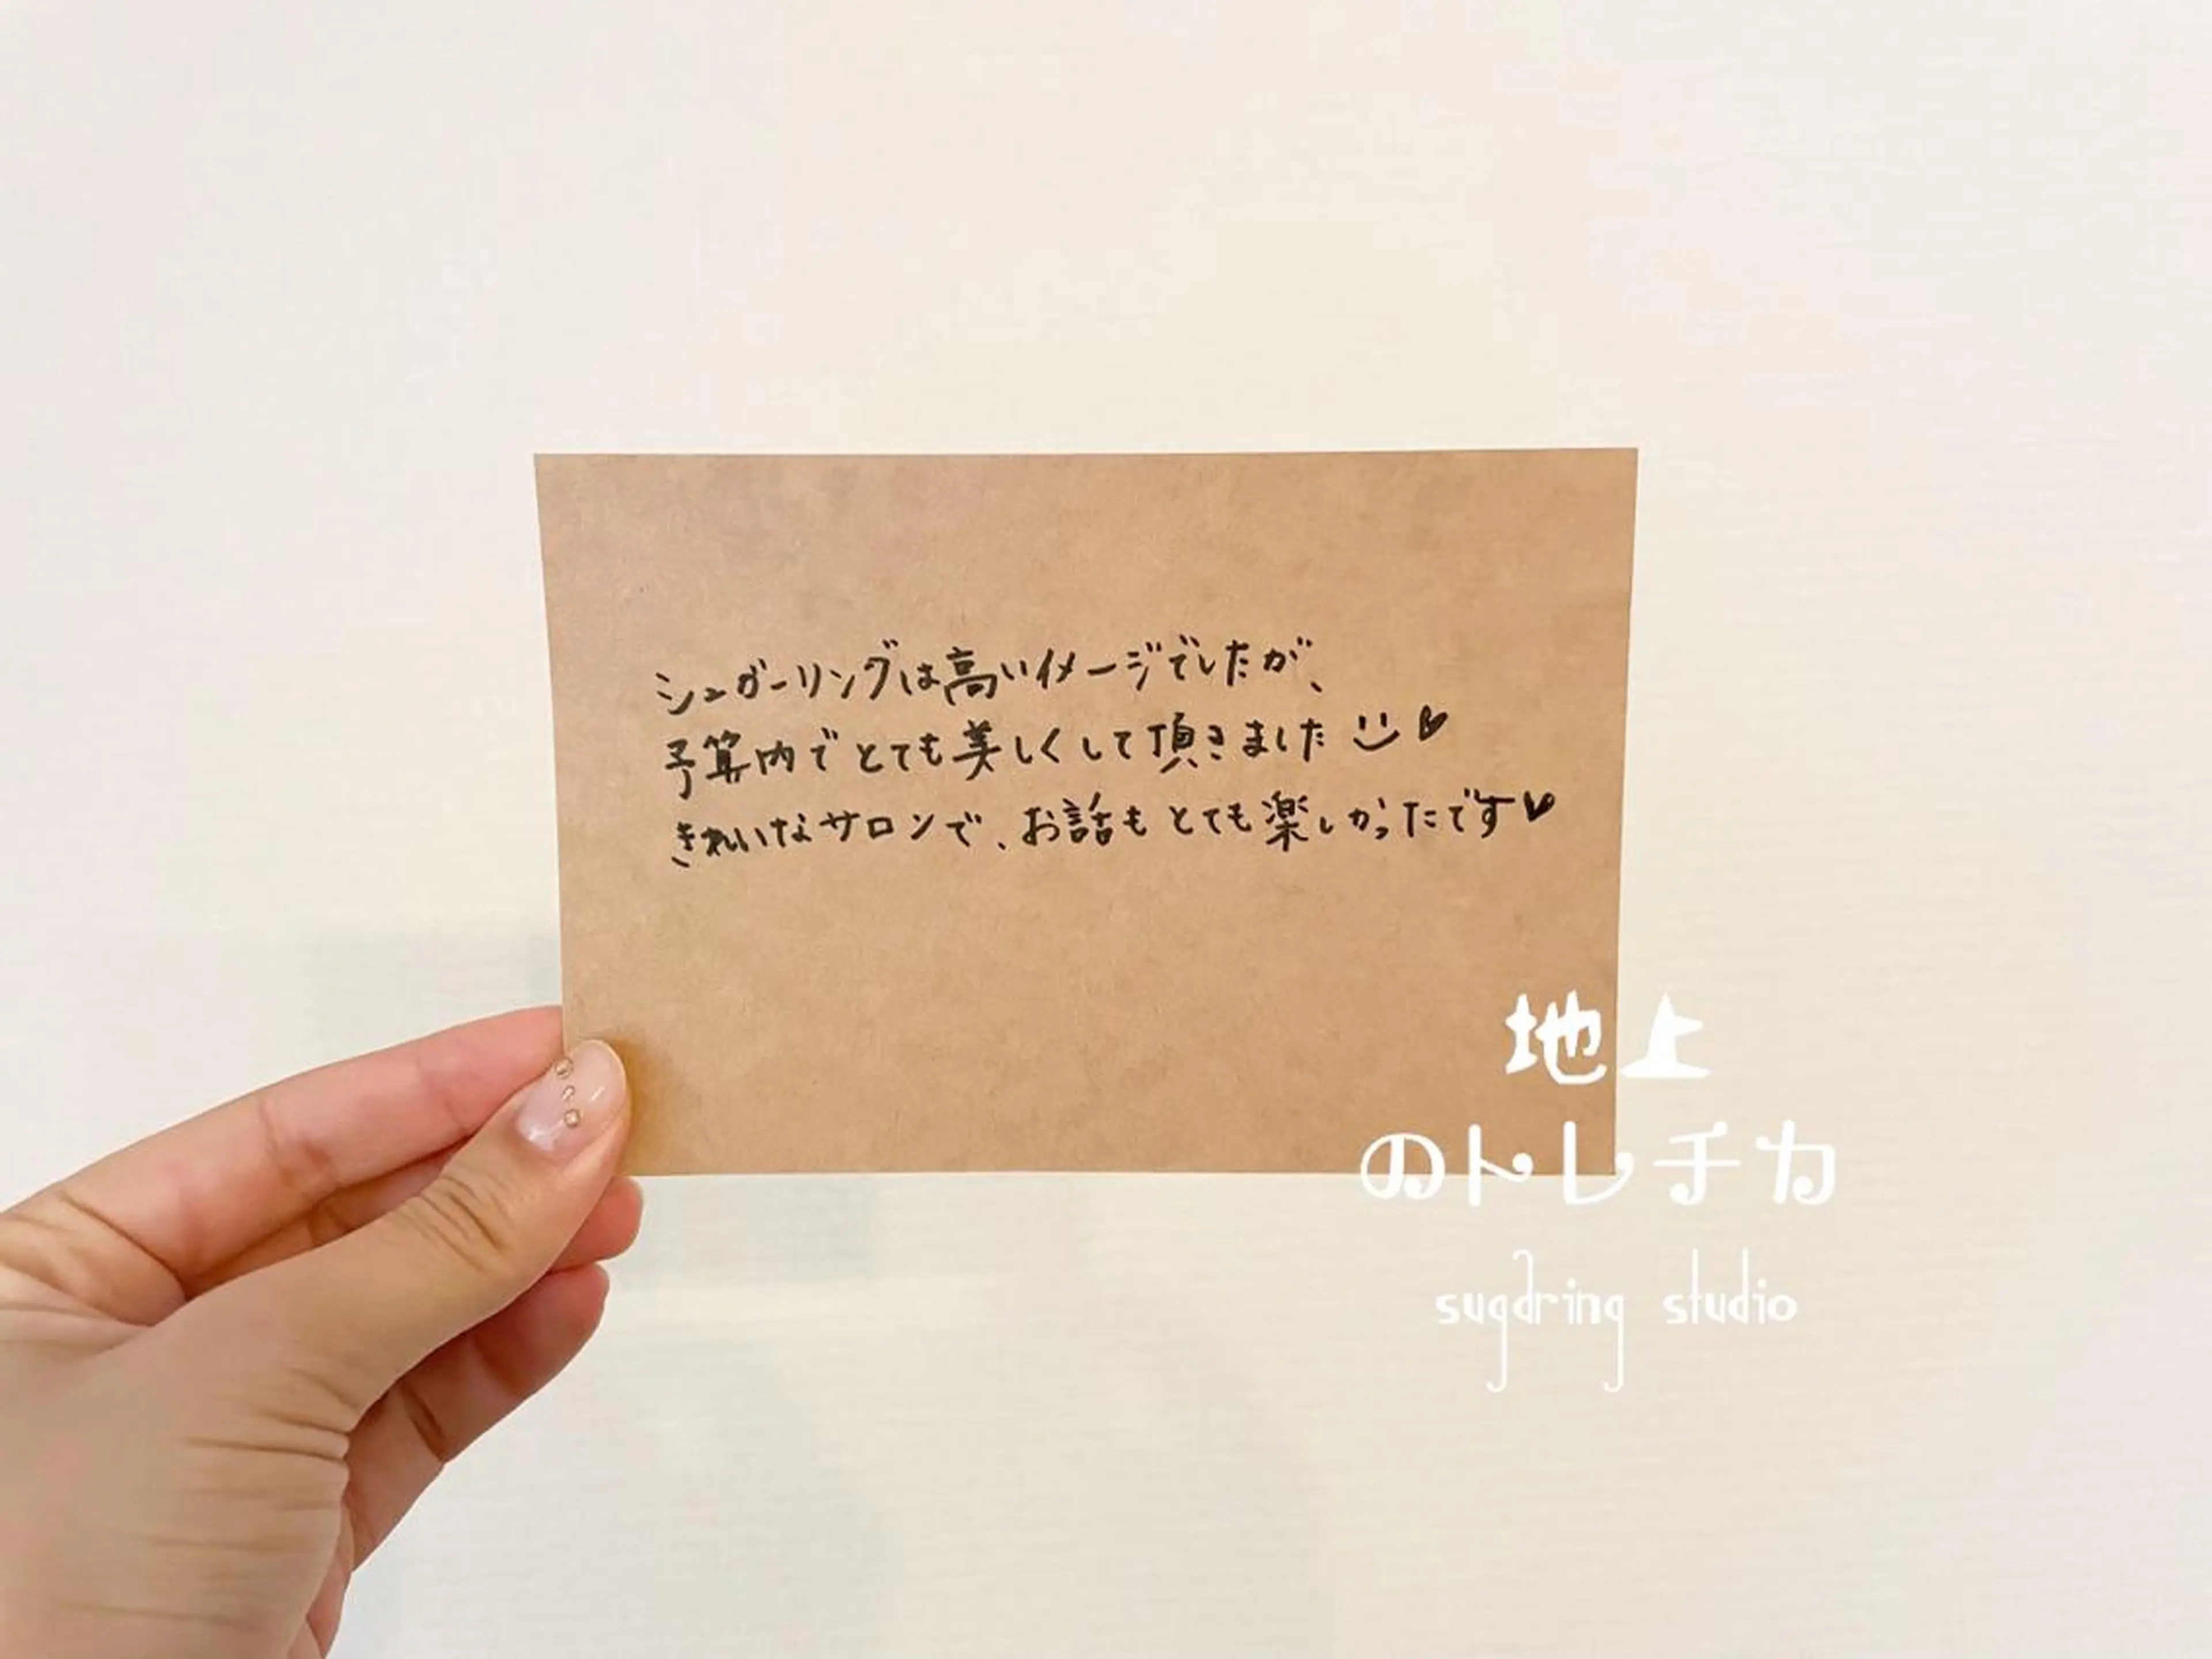 シュガーリングは高いイメージでしたが、
予算内でとても美しくして頂きました
きれいなサロンで、お話もとても楽しかったです
地上
のトレチカ
sugaring studio